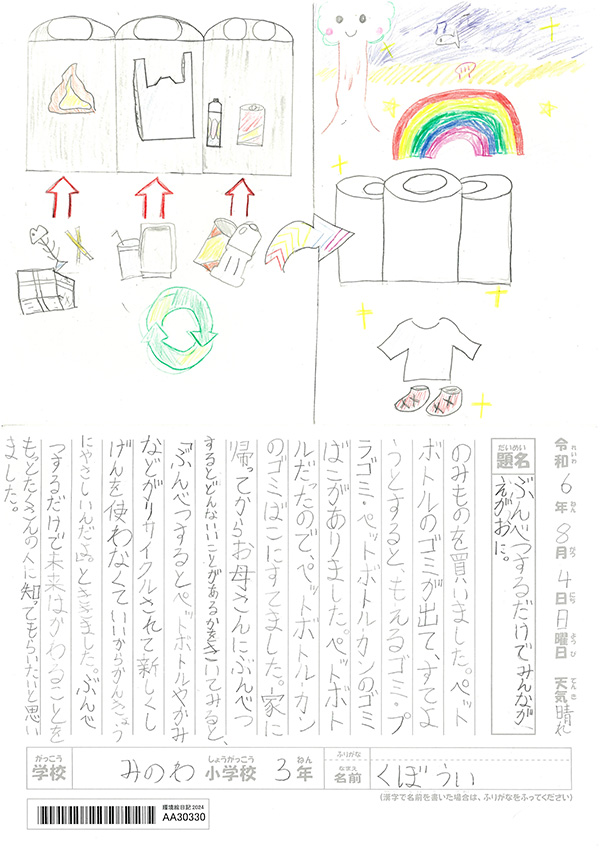 令和6年8月4日日曜日 天気晴れ
れいわ ねん がつ にち ようび てんき
だいめい
題名
ぶんべつするだけでみんなが、
えがおに。
のみものを買いました。ペット
ボトルのゴミが出て、すてよ
うとすると、もえるゴミ・プ
ラゴミ・ペットボトル・カンのゴミ
ばこがありました。ペットボト
ルだったので、ペットボトル・カン
のゴミばこにすてました。家に
帰ってからお母さんにぶんべつ
するとどんないいことがあるかをきいてみると、
「ぶんべつするとペットボトルやかみ
などがリサイクルされて新しくし
げんを使わなくていいからかんきょう
にやさしいんだよ。」とききました。ぶんべ
つするだけで未来はかわることを
もっとたくさんの人に知ってもらいたいと思い
ました。
がっこう しょうがっこう ねん ふりがな
学校 みのわ 小学校 3年 名前 くぼ うい
なまえ
(漢字で名前を書いた場合は、ふりがなをふってください)
環境絵日記2024
AA30330